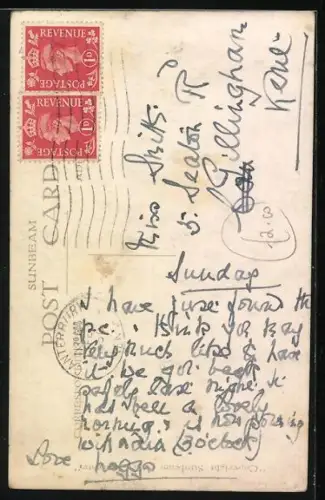 REVENUE
POSTAGE
1D
REVENUE
POSTAGE
1D
SUNBEAM
POST CARD
CANTERBURY
Miss
5. Seaton Rd
Gillingham
Kent
12.00
Sunday
I have just found this
p.c. I think you may
very much like to have
it. We got back
safely last night it
has been a lovely
morning & is now pouring
with rain (3 o'clock)
Love